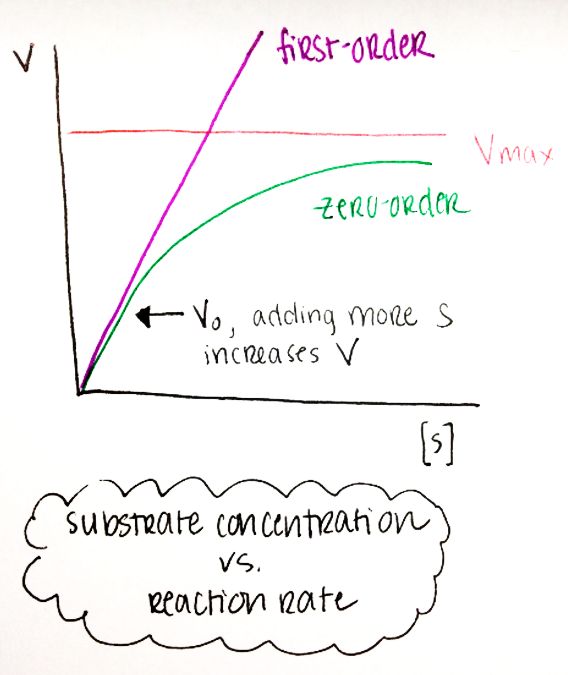 V
first-order
Vmax
zero-order
← V₀, adding more S
increases V
[s]
substrate concentration
vs.
reaction rate